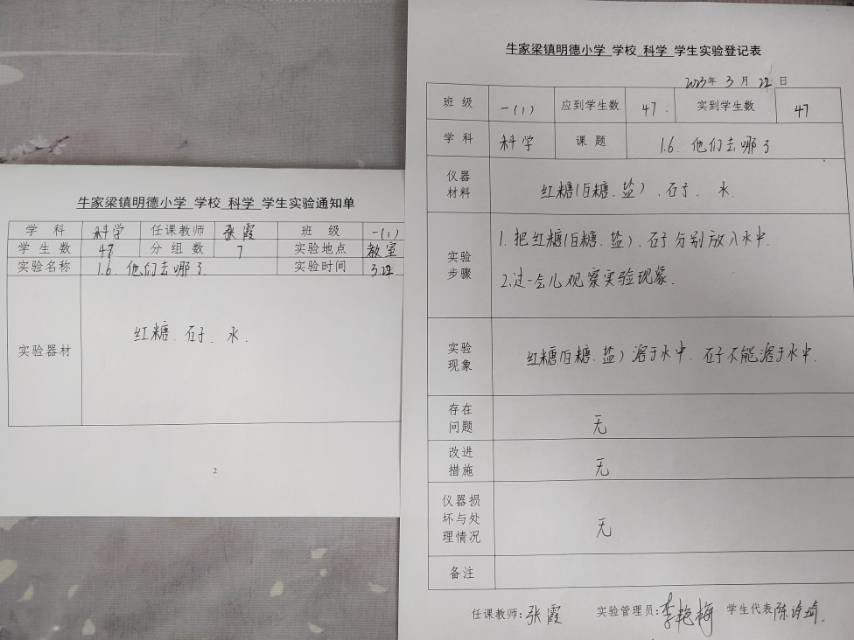 牛家梁镇明德小学 学校 科学 学生实验通知单
学 科 科学 任课教师 张霞 班 级 一(1)
学 生 数 47 分 组 数 7 实验地点 教室
实验名称 1.6. 他们去哪了 实验时间 3.22
实验器材 红糖、石子、水.
2
牛家梁镇明德小学 学校 科学 学生实验登记表
2023年 3 月 22 日
班 级 一(1) 应到学生数 47. 实到学生数 47
学 科 科学 课 题 1.6. 他们去哪了
仪器材料 红糖(白糖、盐)、石子、水.
实验步骤 1. 把红糖(白糖、盐)、石子分别放入水中.
2. 过一会儿观察实验现象.
实验现象 红糖(白糖、盐)溶于水中、石子不能溶于水中.
存在问题 无
改进措施 无
仪器损坏与处理情况 无
备注
任课教师:张霞 实验管理员:李艳梅 学生代表:陈